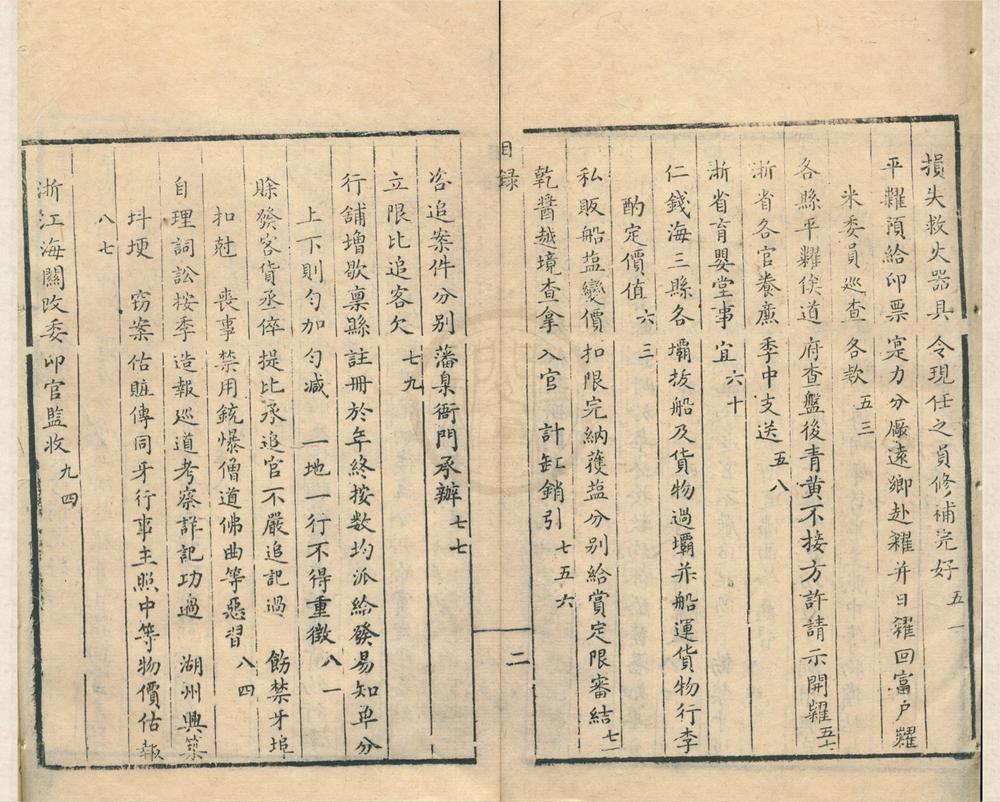 損失救火器具　令現任之員修補完好　五一
平糶預給印票　寔力分廠遠鄉赴糴并日糴回富户糶
米委員巡查　各款　五三
各縣平糶俟道　府查盤後青黄不接方許請示開糶　五七
浙省各官養廉　季中支送　五八
浙省育嬰堂事　宜　六十
仁錢海三縣各　壩抜船及貨物過壩并船運貨物行李
酌定價值　六三
私販船盐變價　扣限完納獲盐分别給賞定限審結　七一
乾醬越境查拿　入官　計缸銷引　七五六
目録
二
咨追案件分别　藩臬衙門承辦　七七
立限比追客欠　七九
行舖增歇禀縣　註冊於年終按数均派給發易知单分
上下則勻加　勻减　一地一行不得重徴　八一
賖發客貨丞倅　提比承追官不嚴追記過　飭禁牙埠
扣尅　喪事　禁用銃爆僧道佛曲等惡習　八四
自理詞訟按季　造報巡道考察詳記功過　湖州興築
圩埂　窃案　估賍傳同牙行事主照中等物價估報
八七
浙江海關改委　印官監收　九四